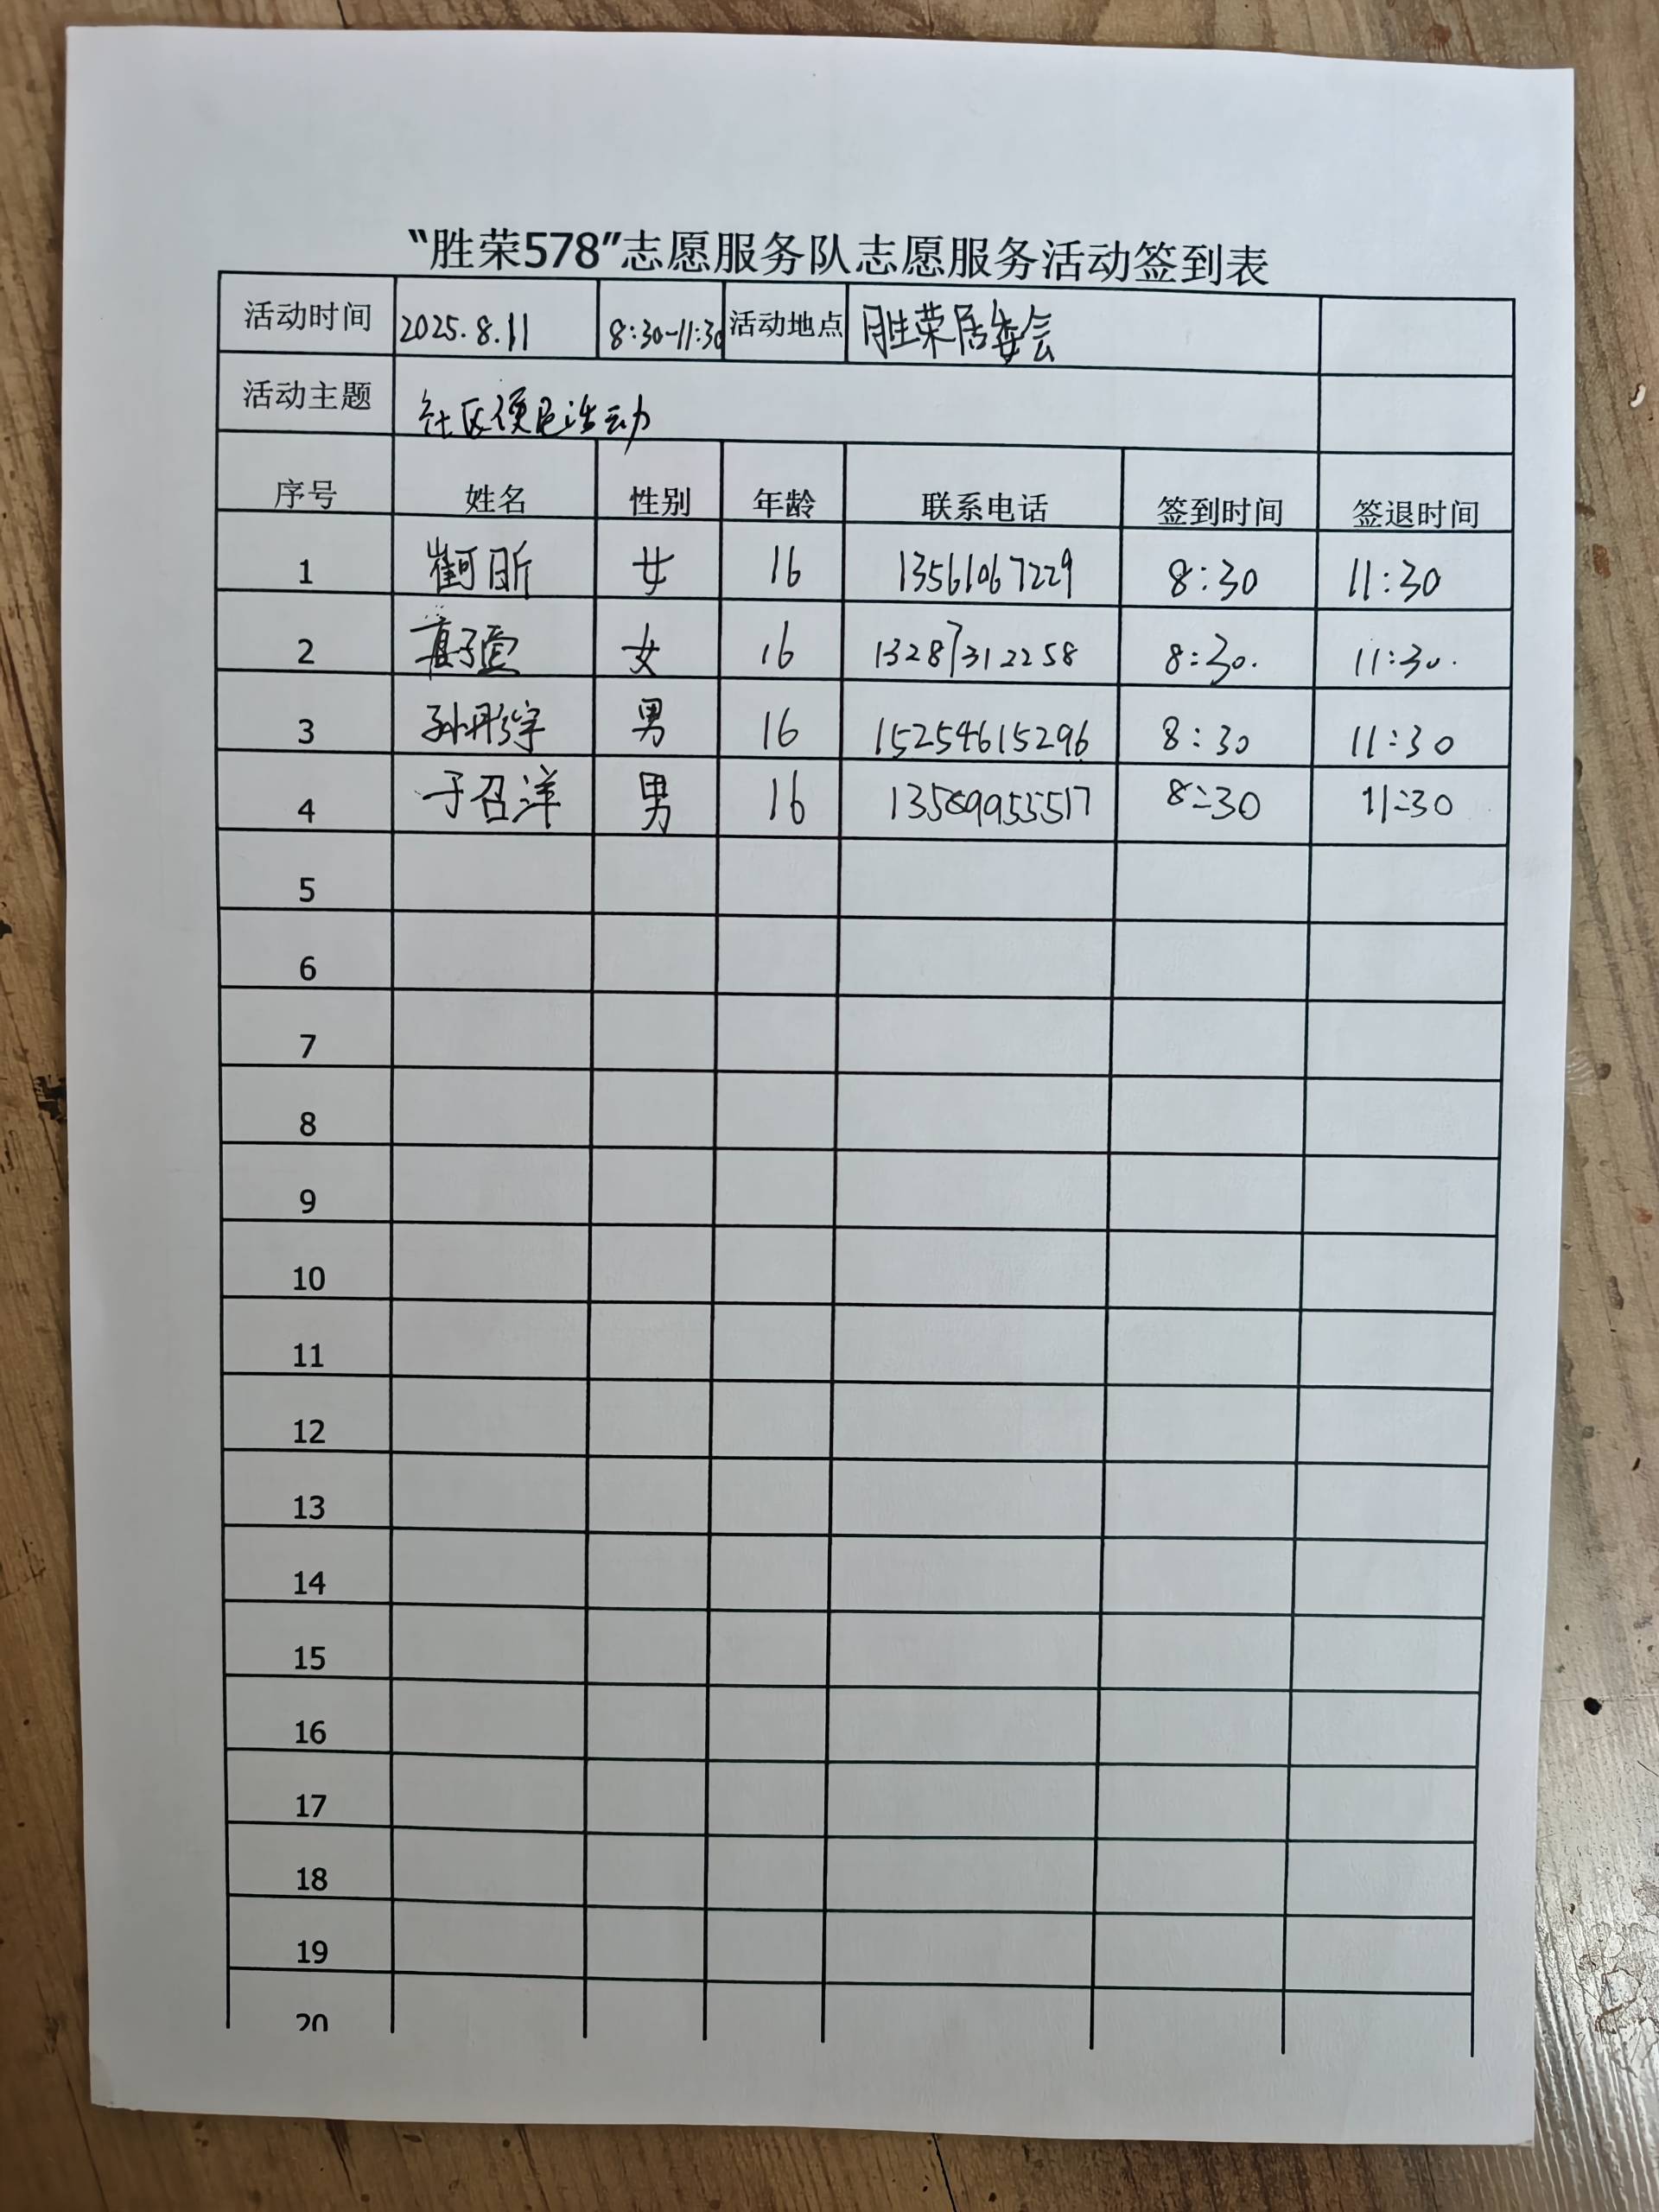 “胜荣578”志愿服务队志愿服务活动签到表
活动时间 2025.8.11 8:30-11:30 活动地点 胜荣居委会
活动主题 社区便民活动
序号 姓名 性别 年龄 联系电话 签到时间 签退时间
1 崔可昕 女 16 13561067229 8:30 11:30
2 子萱 女 16 13287312258 8:30. 11:30.
3 孙彤宇 男 16 15254615296 8:30 11:30
4 于召洋 男 16 13589955517 8:30 11:30
5
6
7
8
9
10
11
12
13
14
15
16
17
18
19
20